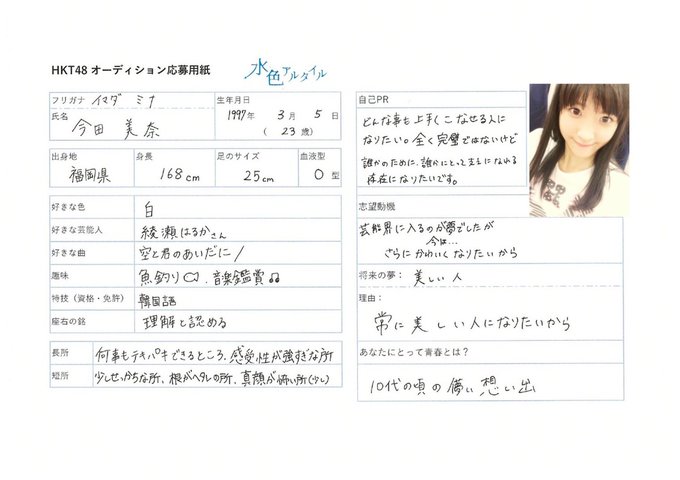 HKT48 オーディション応募用紙
水色アルタイル
フリガナ イマダ ミナ
氏名 今田 美奈
生年月日
1997年 3月 5日
( 23歳)
出身地 福岡県
身長 168cm
足のサイズ 25cm
血液型 O型
好きな色 白
好きな芸能人 綾瀬はるかさん
好きな曲 空と君のあいだに/
趣味 魚釣り、音楽鑑賞♫
特技(資格・免許) 韓国語
座右の銘 理解と認める
長所 何事もテキパキできるところ、感受性が強すぎな所
短所 少しせっかちな所、根がヘタレの所、真顔が怖い所(少し)
自己PR
どんな事も上手くこなせる人に
なりたい。全く完璧ではないけど
誰かのために、誰かにとって になれる
存在になりたいです。
志望動機
芸能界に入るのが夢でしたが
今は…
さらにかわいくなりたいから
将来の夢: 美しい人
理由:
常に美しい人になりたいから
あなたにとって青春とは?
10代の頃の儚い想い出